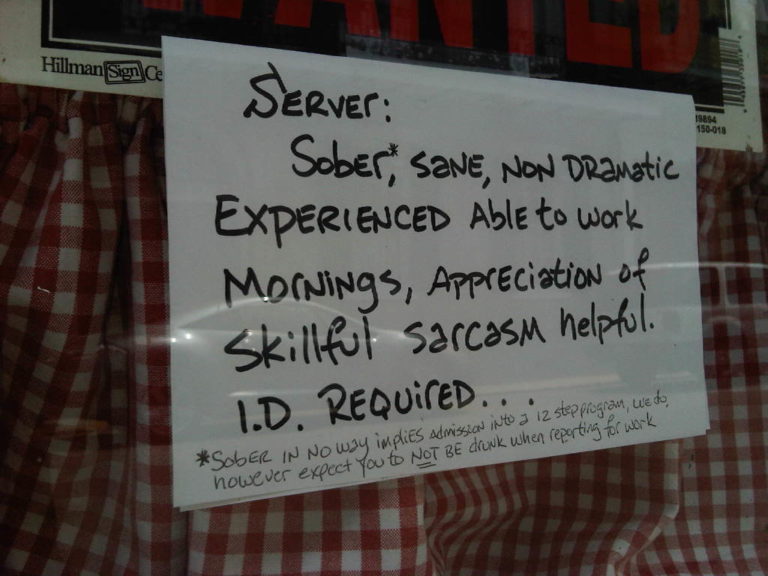 WANTED
Hillman Sign Ce
19894
150-018
SERVER:
Sober*, SANE, NON DRAMATIC
EXPERIENCED Able to work
MORNINGS, Appreciation of
skillful sarcasm helpful.
I.D. REQUIRED...
*SOBER IN NO WAY implies Admission into a 12 step program, we do,
however expect you to NOT BE drunk when reporting for work